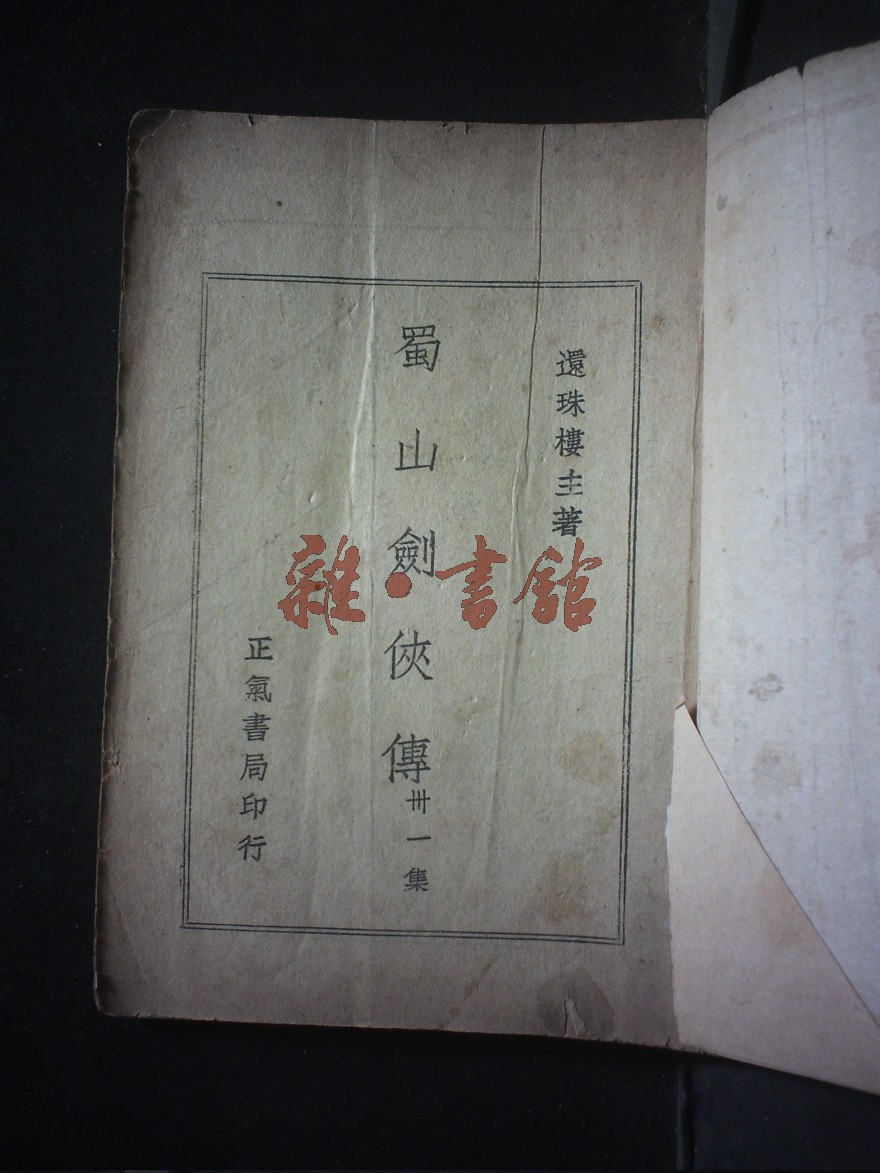 還珠樓主著
蜀山劍俠傳卅一集
正氣書局印行
雜·書館